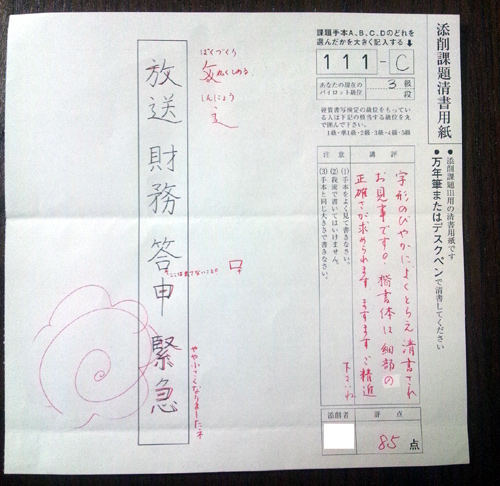 添削課題清書用紙
●添削課題111用の清書用紙です
●万年筆またはデスクペンで清書してください
課題手本A、B、C、Dのどれを
選んだかを大きく記入する↓
111-C
あなたの現在の
パイロット級位
3級
段
硬筆書写検定の級位をもってい
る人は下記の該当する級位をえ
で囲んで下さい。
1級・準1級・2級・3級・4級・5級
講評
字形のびやかによくとらえ清書され
お見事です。楷書体は細部の
正確さが求められます ますますご精進
下さいね
注意
(1)手本をよく見て書きなさい。
(2)段前で書いてはいけません。
(3)手本と同じ大きさで書きなさい。
添削者
評点
85点
ぼくづくり
しめる
しんにょう
放送財務答申緊急
ここは出てないこと。
やや小さくなりましたネ